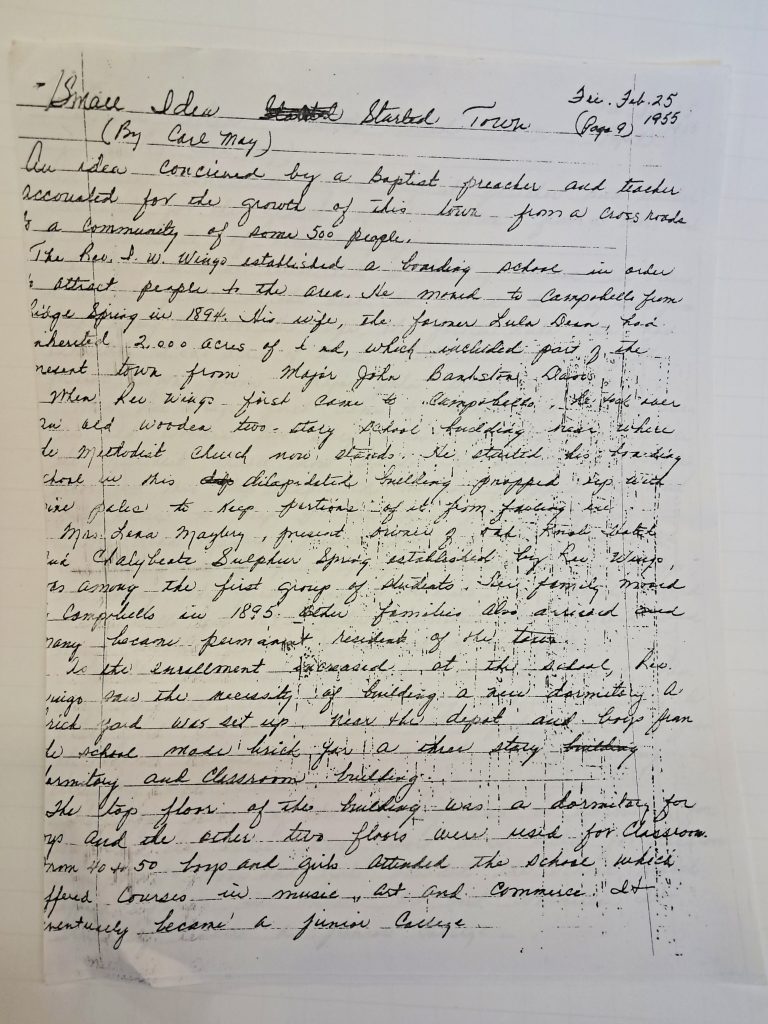 Small Idea Started Town
Fri. Feb. 25
1955
(By Carl May)
(Page 9)
An idea concieved by a Baptist preacher and teacher
accounted for the growth of this town from a cross roads
a community of some 500 people.
The Rev. I. W. Wingo established a boarding school in order
attract people to the area. He moved to Campobello from
idge Spring in 1894. His wife, the former Lula Dean, had
nherited 2,000 acres of l nd, which included part of the
resent town from Major John Bankston Davis
When Rev Wingo first came to Campobello, he took over
an old wooden two-story school building near where
he Methodist Church now stands. He started his boarding
chool in this dilapidated building propped up with
ine poles to keep portions of it from falling in.
Mrs. Lena Mayberry, present owner of Oak Knob Hotel
and Chalybeate Sulphur Spring established by Rev Wingo,
as among the first group of students. Her family moved
Campobello in 1895. Other families also arrived and
many became permanant residents of the town.
As the enrollment increased at the school, Rev.
Wingo saw the necessity of building a new dormitory. A
rick yard was set up near the depot and boys from
he school made brick for a three story building
ormitory and Classroom building.
The top floor of this building was a dormitory for
oys and the other two floors were used for Classroom.
rom 40 to 50 boys and girls attended the school which
ffered Courses in music, art and Commerce It
ventually became a junior College